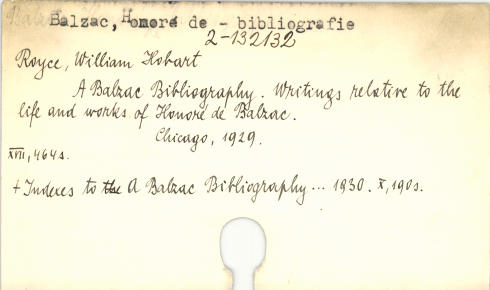 Balzac, Honoré de - bibliografie
2-132132
Royce, William Hobart
A Balzac Bibliography. Writings relative to the
life and works of Honoré de Balzac.
Chicago, 1929.
XVII, 464s.
+ Indexes to the A Balzac Bibliography... 1930. X, 190s.